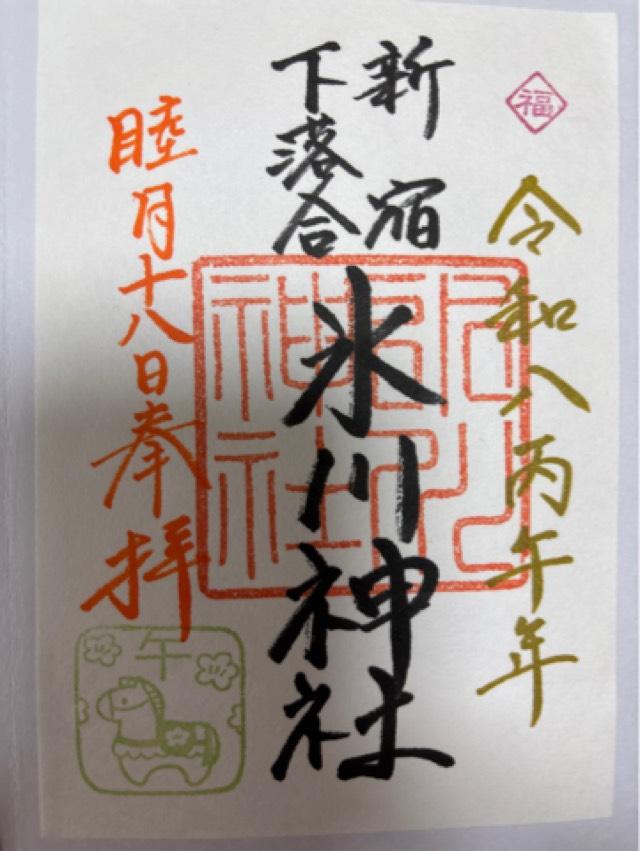 福
令和八丙午年
新宿
下落合
氷川神社
睦月十八日奉拝
午